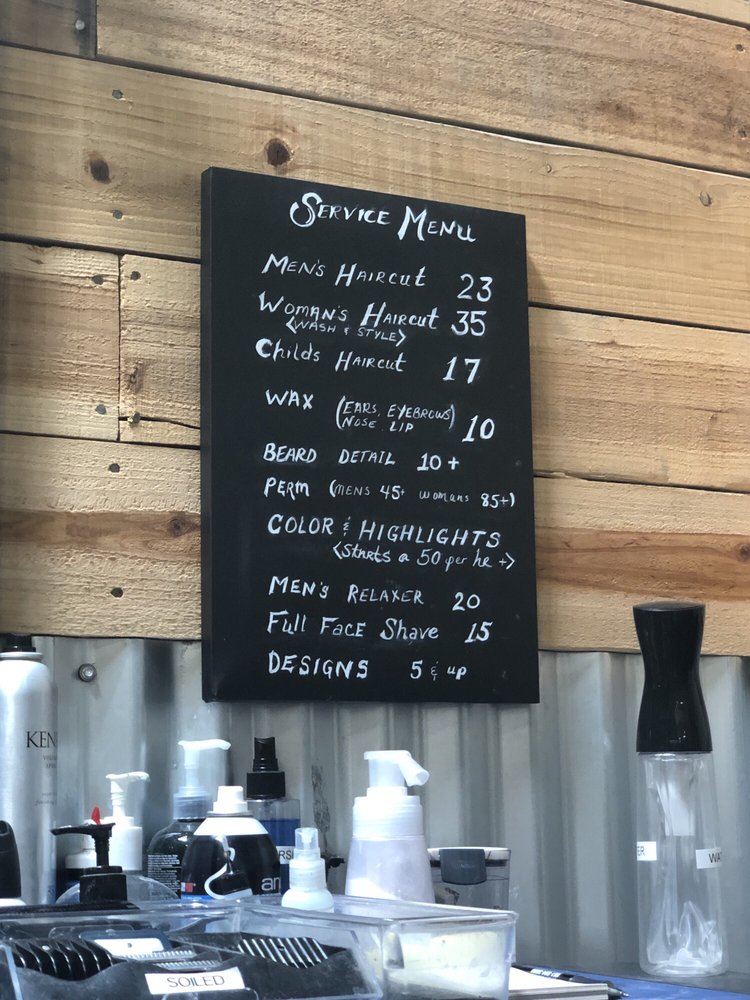 SERVICE MENU
MEN'S HAIRCUT 23
WOMAN'S HAIRCUT 35
<WASH & STYLE>
CHILDS HAIRCUT 17
WAX (EARS, EYEBROWS) 10
NOSE, LIP
BEARD DETAIL 10+
PERM (MENS 45+ WOMANS 85+)
COLOR & HIGHLIGHTS
<Starts @ 50 per hr +>
MEN'S RELAXER 20
Full Face Shave 15
DESIGNS 5 & up
KEN
SOILED